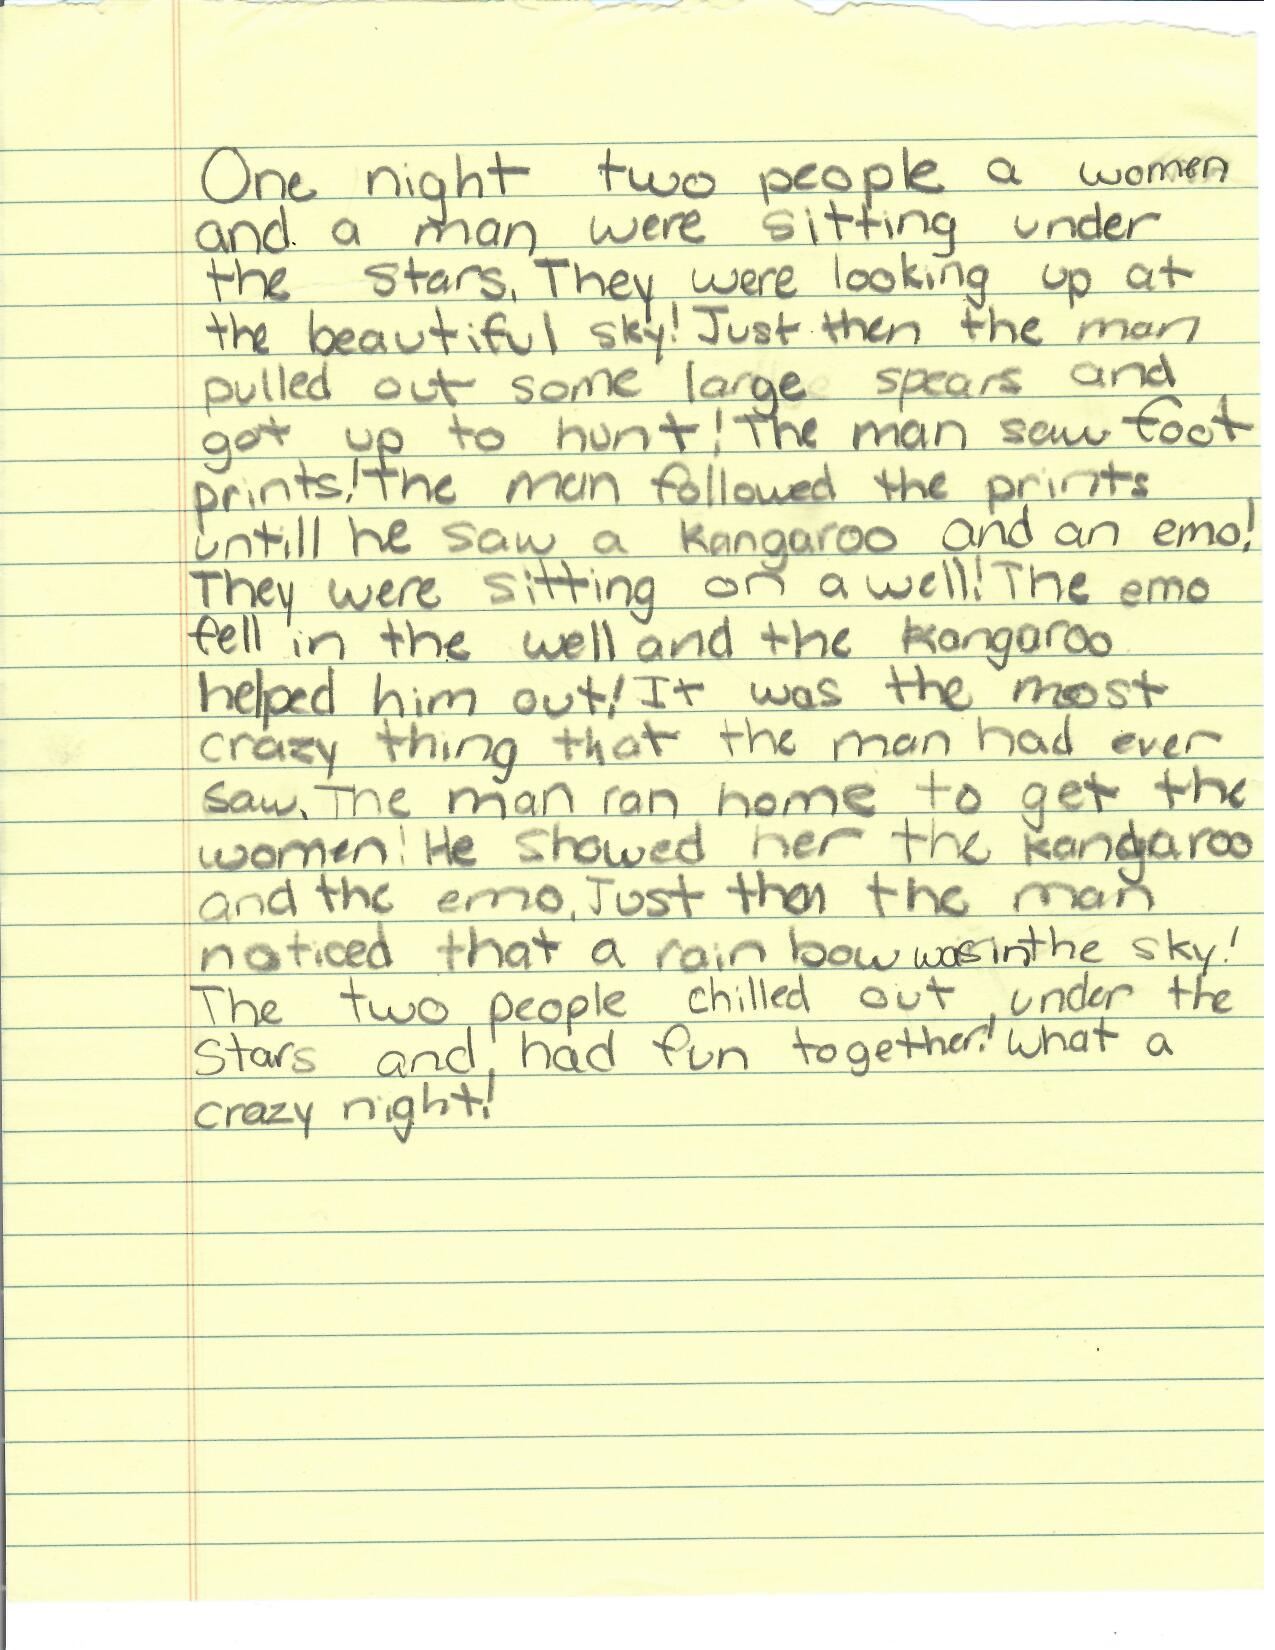 One night two people a women
and a man were sitting under
the stars. They were looking up at
the beautiful sky! Just then the man
pulled out some large spears and
got up to hunt! The man saw foot
prints! The man followed the prints
untill he saw a kangaroo and an emo!
They were sitting on a well! The emo
fell in the well and the kangaroo
helped him out! It was the most
crazy thing that the man had ever
saw. The man ran home to get the
women! He showed her the kangaroo
and the emo. Just then the man
noticed that a rain bow was in the sky!
The two people chilled out under the
stars and had fun together! What a
crazy night!